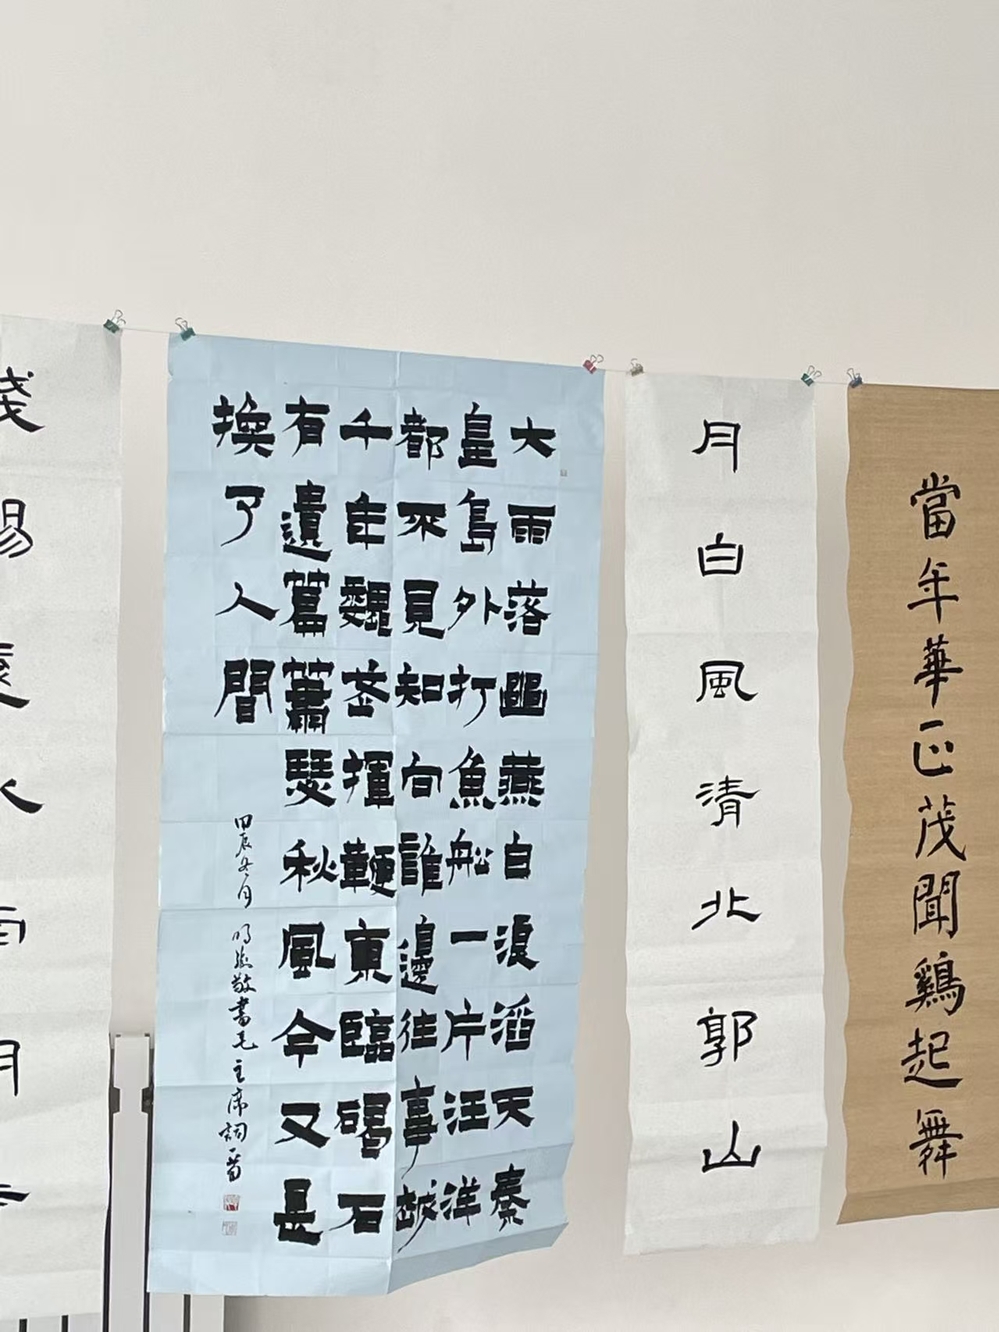 當年華正茂聞鷄起舞
月白風清北郭山
大雨落幽燕白浪滔天秦
皇島外打魚船一片汪洋
都不見知向誰邊往事越
千年魏武揮鞭東臨碣石
有遺篇蕭瑟秋風今又是
換了人間
甲辰冬月 敬書毛主席詞一首